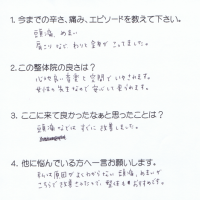 1. 今までの辛さ、痛み、エピソードを教えて下さい。
頭痛、めまい
肩こりなど わりと全身が こってました。
2. この整体院の良さは？
心地良い音楽と空間で いやされます。
女性の先生なので安心して 受られます。
3. ここに来て良かったなぁと思ったことは？
頭痛などは すぐに 改善しました。
4. 他に悩んでいる方へ一言お願いします。
私は原因がよくわからない 頭痛、めまいが
こちらで改善されたので、整体も おすすめです。